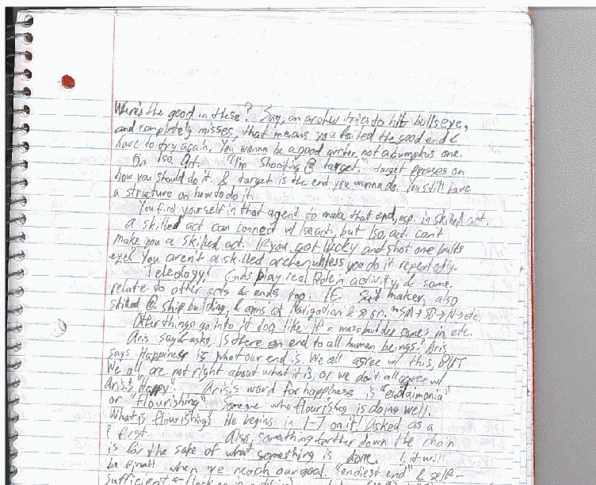 Where's the good in these? Say, an archer tries to hit bullseye,
and completely misses, that means you failed the good end &
have to try again. You wanna be a good archer, not a bumpkus one.
On Iso. Act. "I'm shooting @ target." target presses on
how you should do it & target is the end you wanna do. You still have
a structure on how to do it.
You find yourself in that agent to make that end, esp. in skilled act.
A skilled act can connect w/ iso act, but Iso, act can't
make you a skilled act. If you got lucky and shot one bulls
eye? You aren't a skilled archer unless you do it repeatedly.
Teleology! Ends play real Role in activity, & some
relate to other acts & ends too. IE: Sail maker, also
skilled @ ship building, & aims at Navigation & so on.
Other things go into it too, like if a mass builder comes in etc.
Aris says & asks, Is there an end to all human beings? Aris
says Happiness is what our end is. We all agree w/ this, BUT
We all are not right about what it is, or we don't all agree w/
Aris's "Happy". Aris's word for happiness is "eudaimonia"
or "flourishing" Someone who flourishes is doing well.
What is flourishing? He begins in 1-7 on it! Asked as a
? first. Also, something farther down the chain
is for the sake of what something is done. it will
be final when we reach our goal. "endiest end" & self-
sufficient